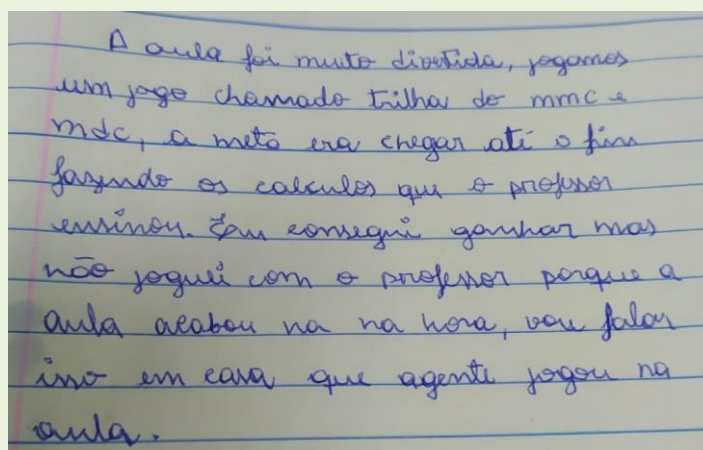 A aula foi muito divertida, jogamos
um jogo chamado trilha do mmc e
mdc, a meta era chegar até o fim
fazendo os calculos que o professor
ensinou. Eu consegui ganhar mas
não joguei com o professor porque a
aula acabou na na hora, vou falar
isso em casa que agente jogou na
aula.